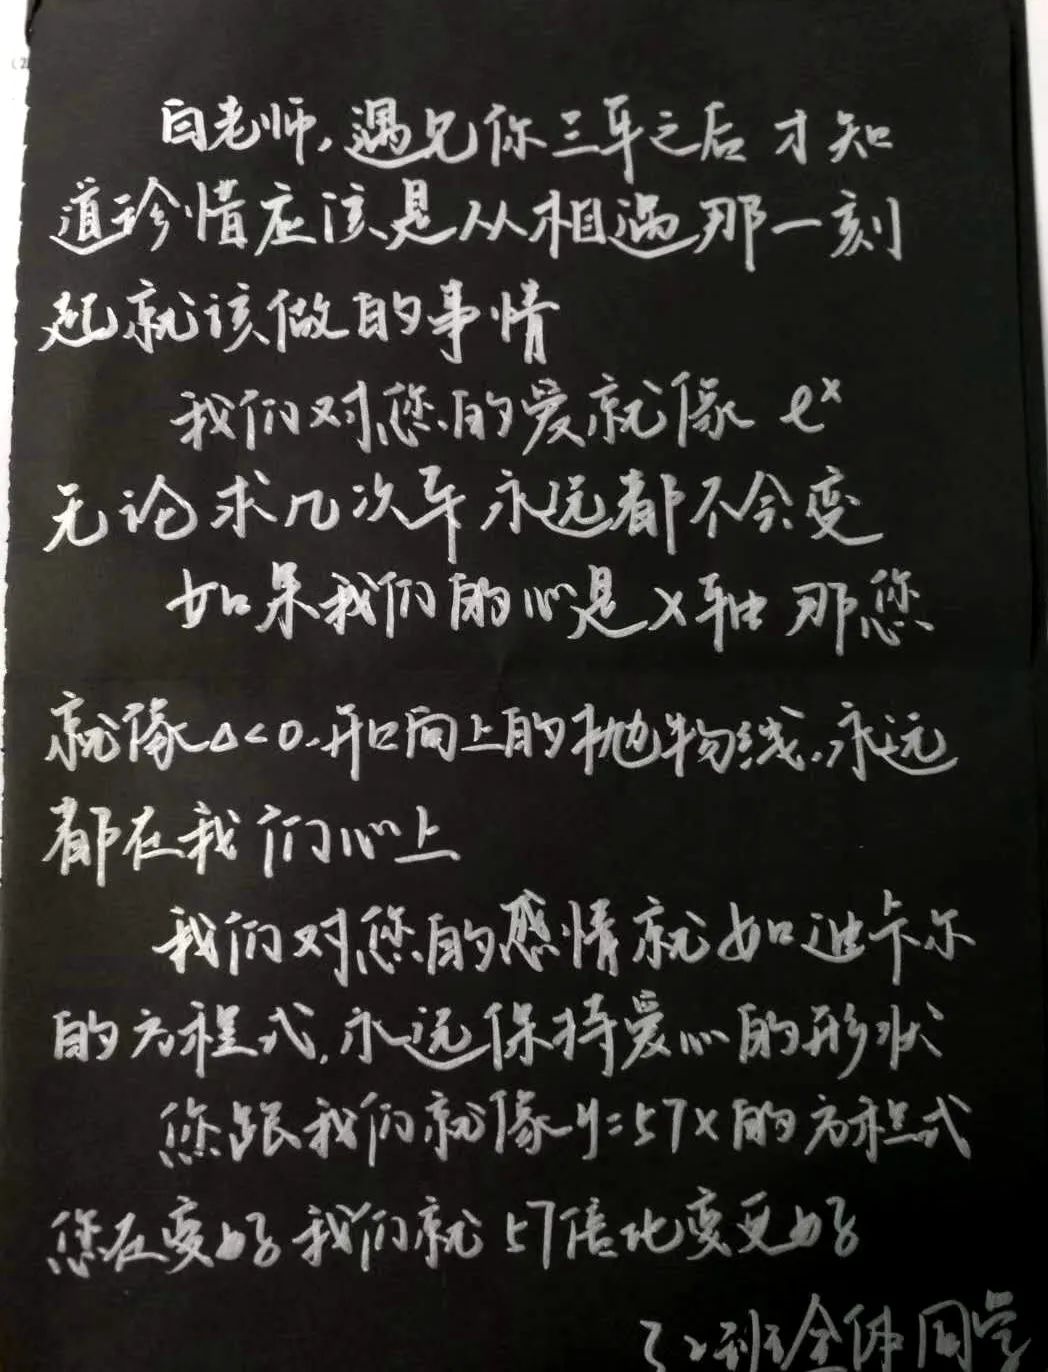 白老师,遇见你三年之后 才知
道珍惜应该是从相遇那一刻
起就该做的事情
我们对您的爱就像 eˣ
无论求几次导 永远都不会变
如果我们的心是x轴 那您
就像△<0.开口向上的抛物线.永远
都在我们心上
我们对您的感情就如迪卡尔
的方程式.永远保持爱心的形状
您跟我们就像y=57x的方程式
您在变好我们就57倍比变更好
班全体同学